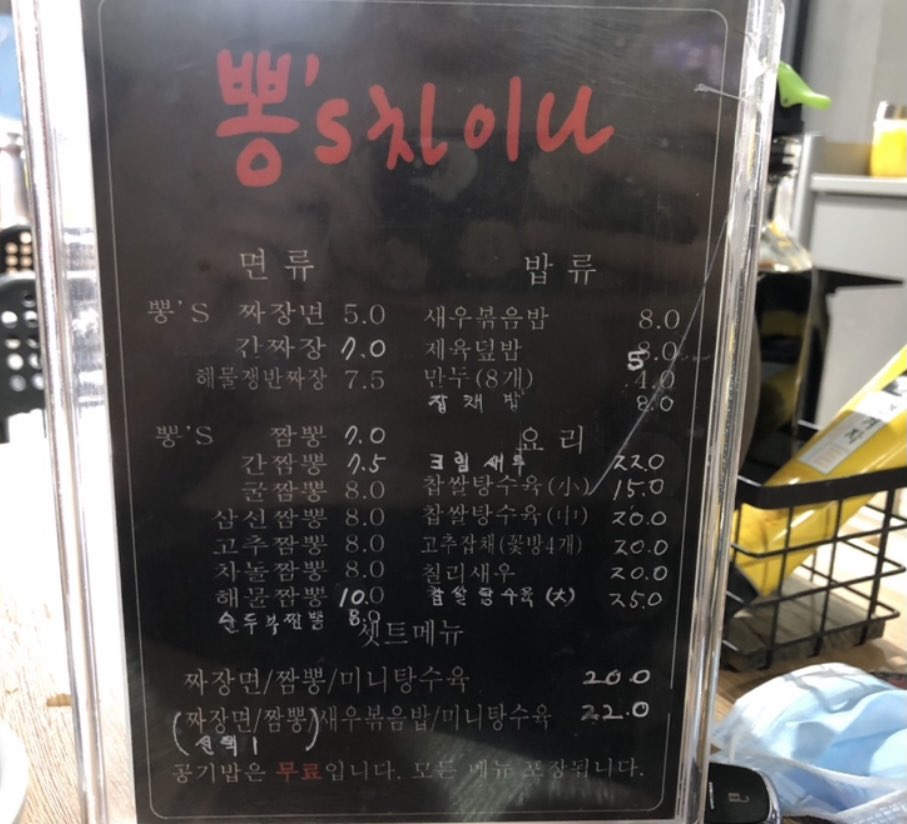 뽕's 차이나
면류
뽕'S 짜장면 5.0
간짜장 7.0
해물쟁반짜장 7.5
뽕'S 짬뽕 7.0
간짬뽕 7.5
굴짬뽕 8.0
삼선짬뽕 8.0
고추짬뽕 8.0
차돌짬뽕 8.0
해물짬뽕 10.0
순두부짬뽕 8.0
밥류
새우볶음밥 8.0
제육덮밥 8.0
만두(8개) 5
잡채밥 8.0
요리
크림새우 22.0
찹쌀탕수육(小) 15.0
찹쌀탕수육(中) 20.0
고추잡채(꽃방4개) 20.0
칠리새우 20.0
찹쌀탕수육(大) 25.0
셋트메뉴
짜장면/짬뽕/미니탕수육 20.0
(짜장면/짬뽕)새우볶음밥/미니탕수육 22.0
(선택1)
공기밥은 무료입니다. 모든 메뉴 포장됩니다.